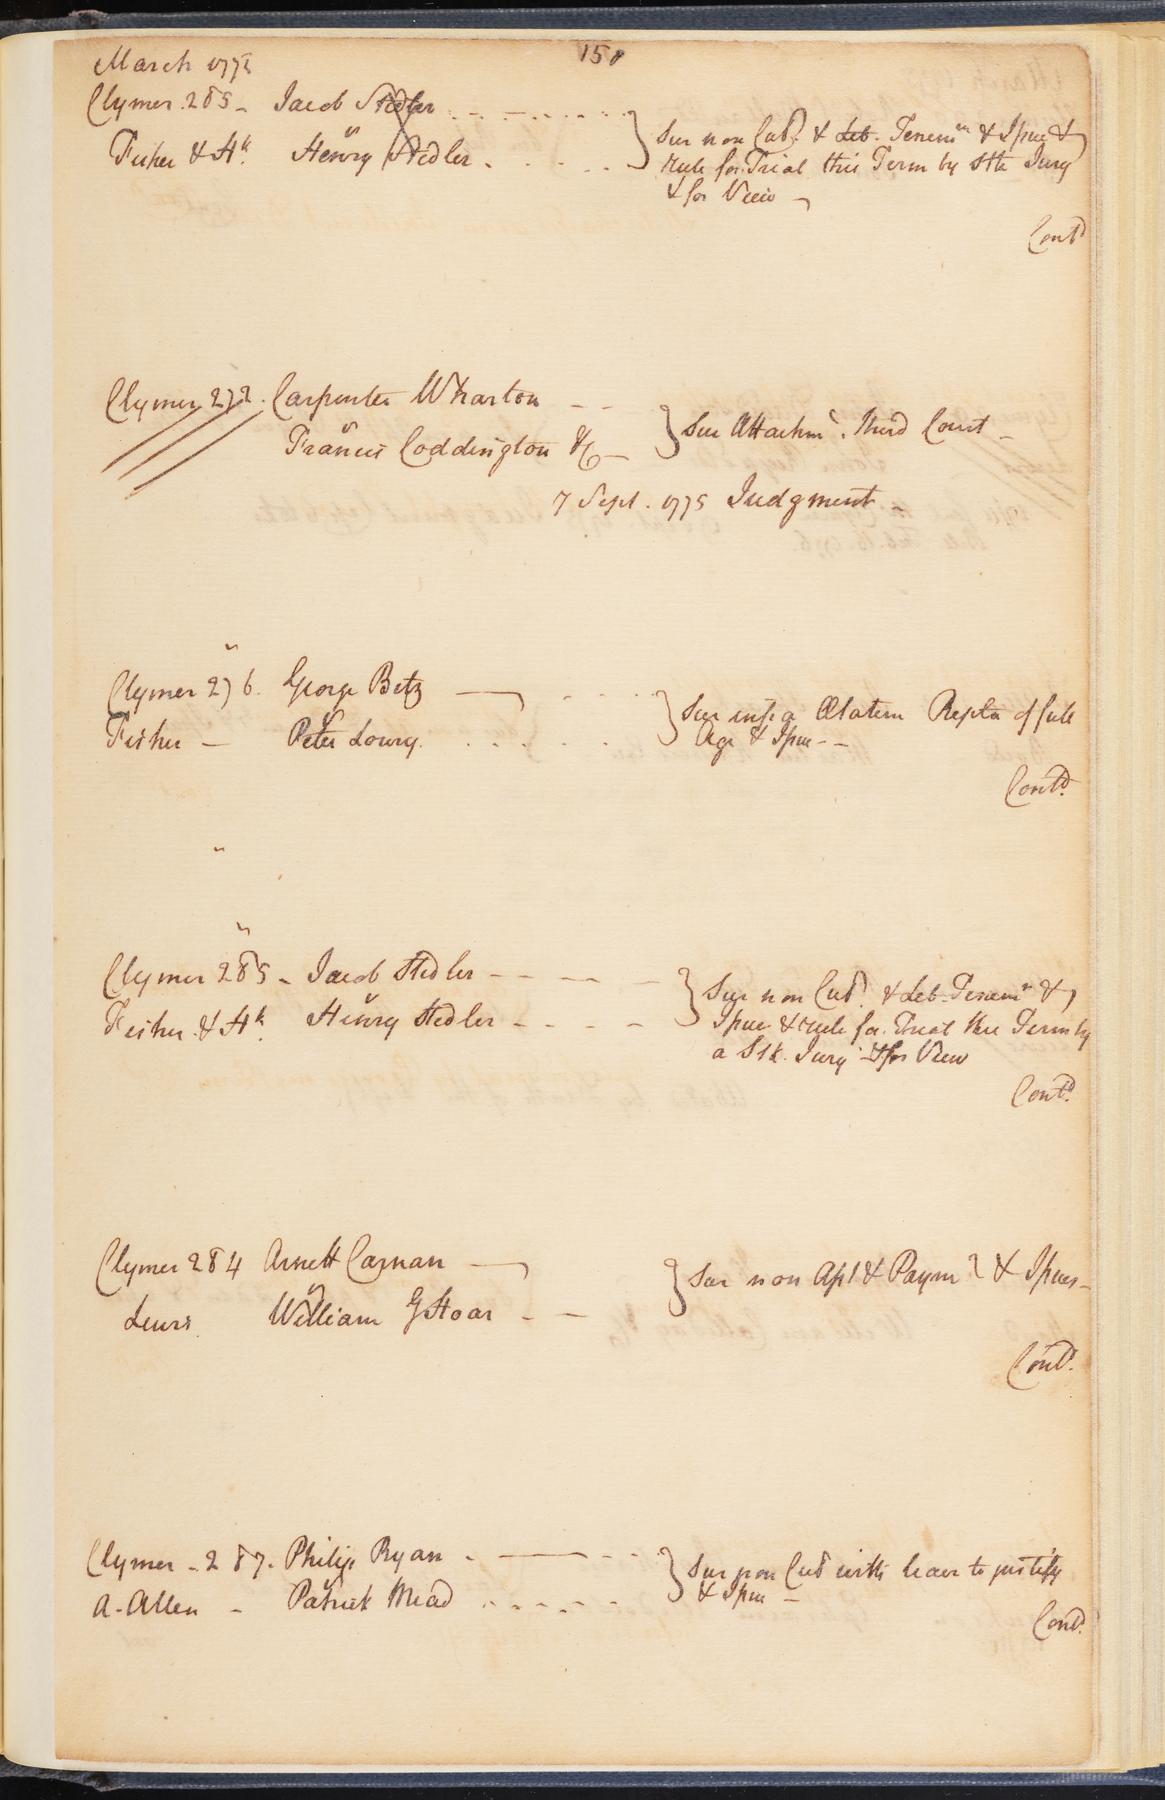 March 1775
158
Clymer. 285 - Jacob Stedler
Fisher & Hk. v Henry Stedler
Sur non Cul. & Lib. Tenemt & Issue &
Rule for Trial this Term by Stk Jury
& for View
Contd
Clymer 272. Carpenter Wharton
v
Francis Coddington &c
Sur Attachmt. Third Court
7 Sept. 1775 Judgment
Clymer 276. George Betz
Fisher - v Peter Lowry.
Sur infra Ætatem Repln of full
Age & Issue
Contd.
Clymer 285 - Jacob Stedler
Fisher & Hk. v Henry Stedler
Sur non Cul. & Lib. Tenemt &
Issue & rule for Trial this Term by
a Stk. Jury & for View
Contd.
Clymer 284 Arnett Carnan
Lewis v William G Hoar
Sur non Aſst & Paymt & Issues
Contd.
Clymer - 287. Philip Ryan
A. Allen - v Patrick Mead
Sur non Cul with leave to justify
& Issue
Contd.